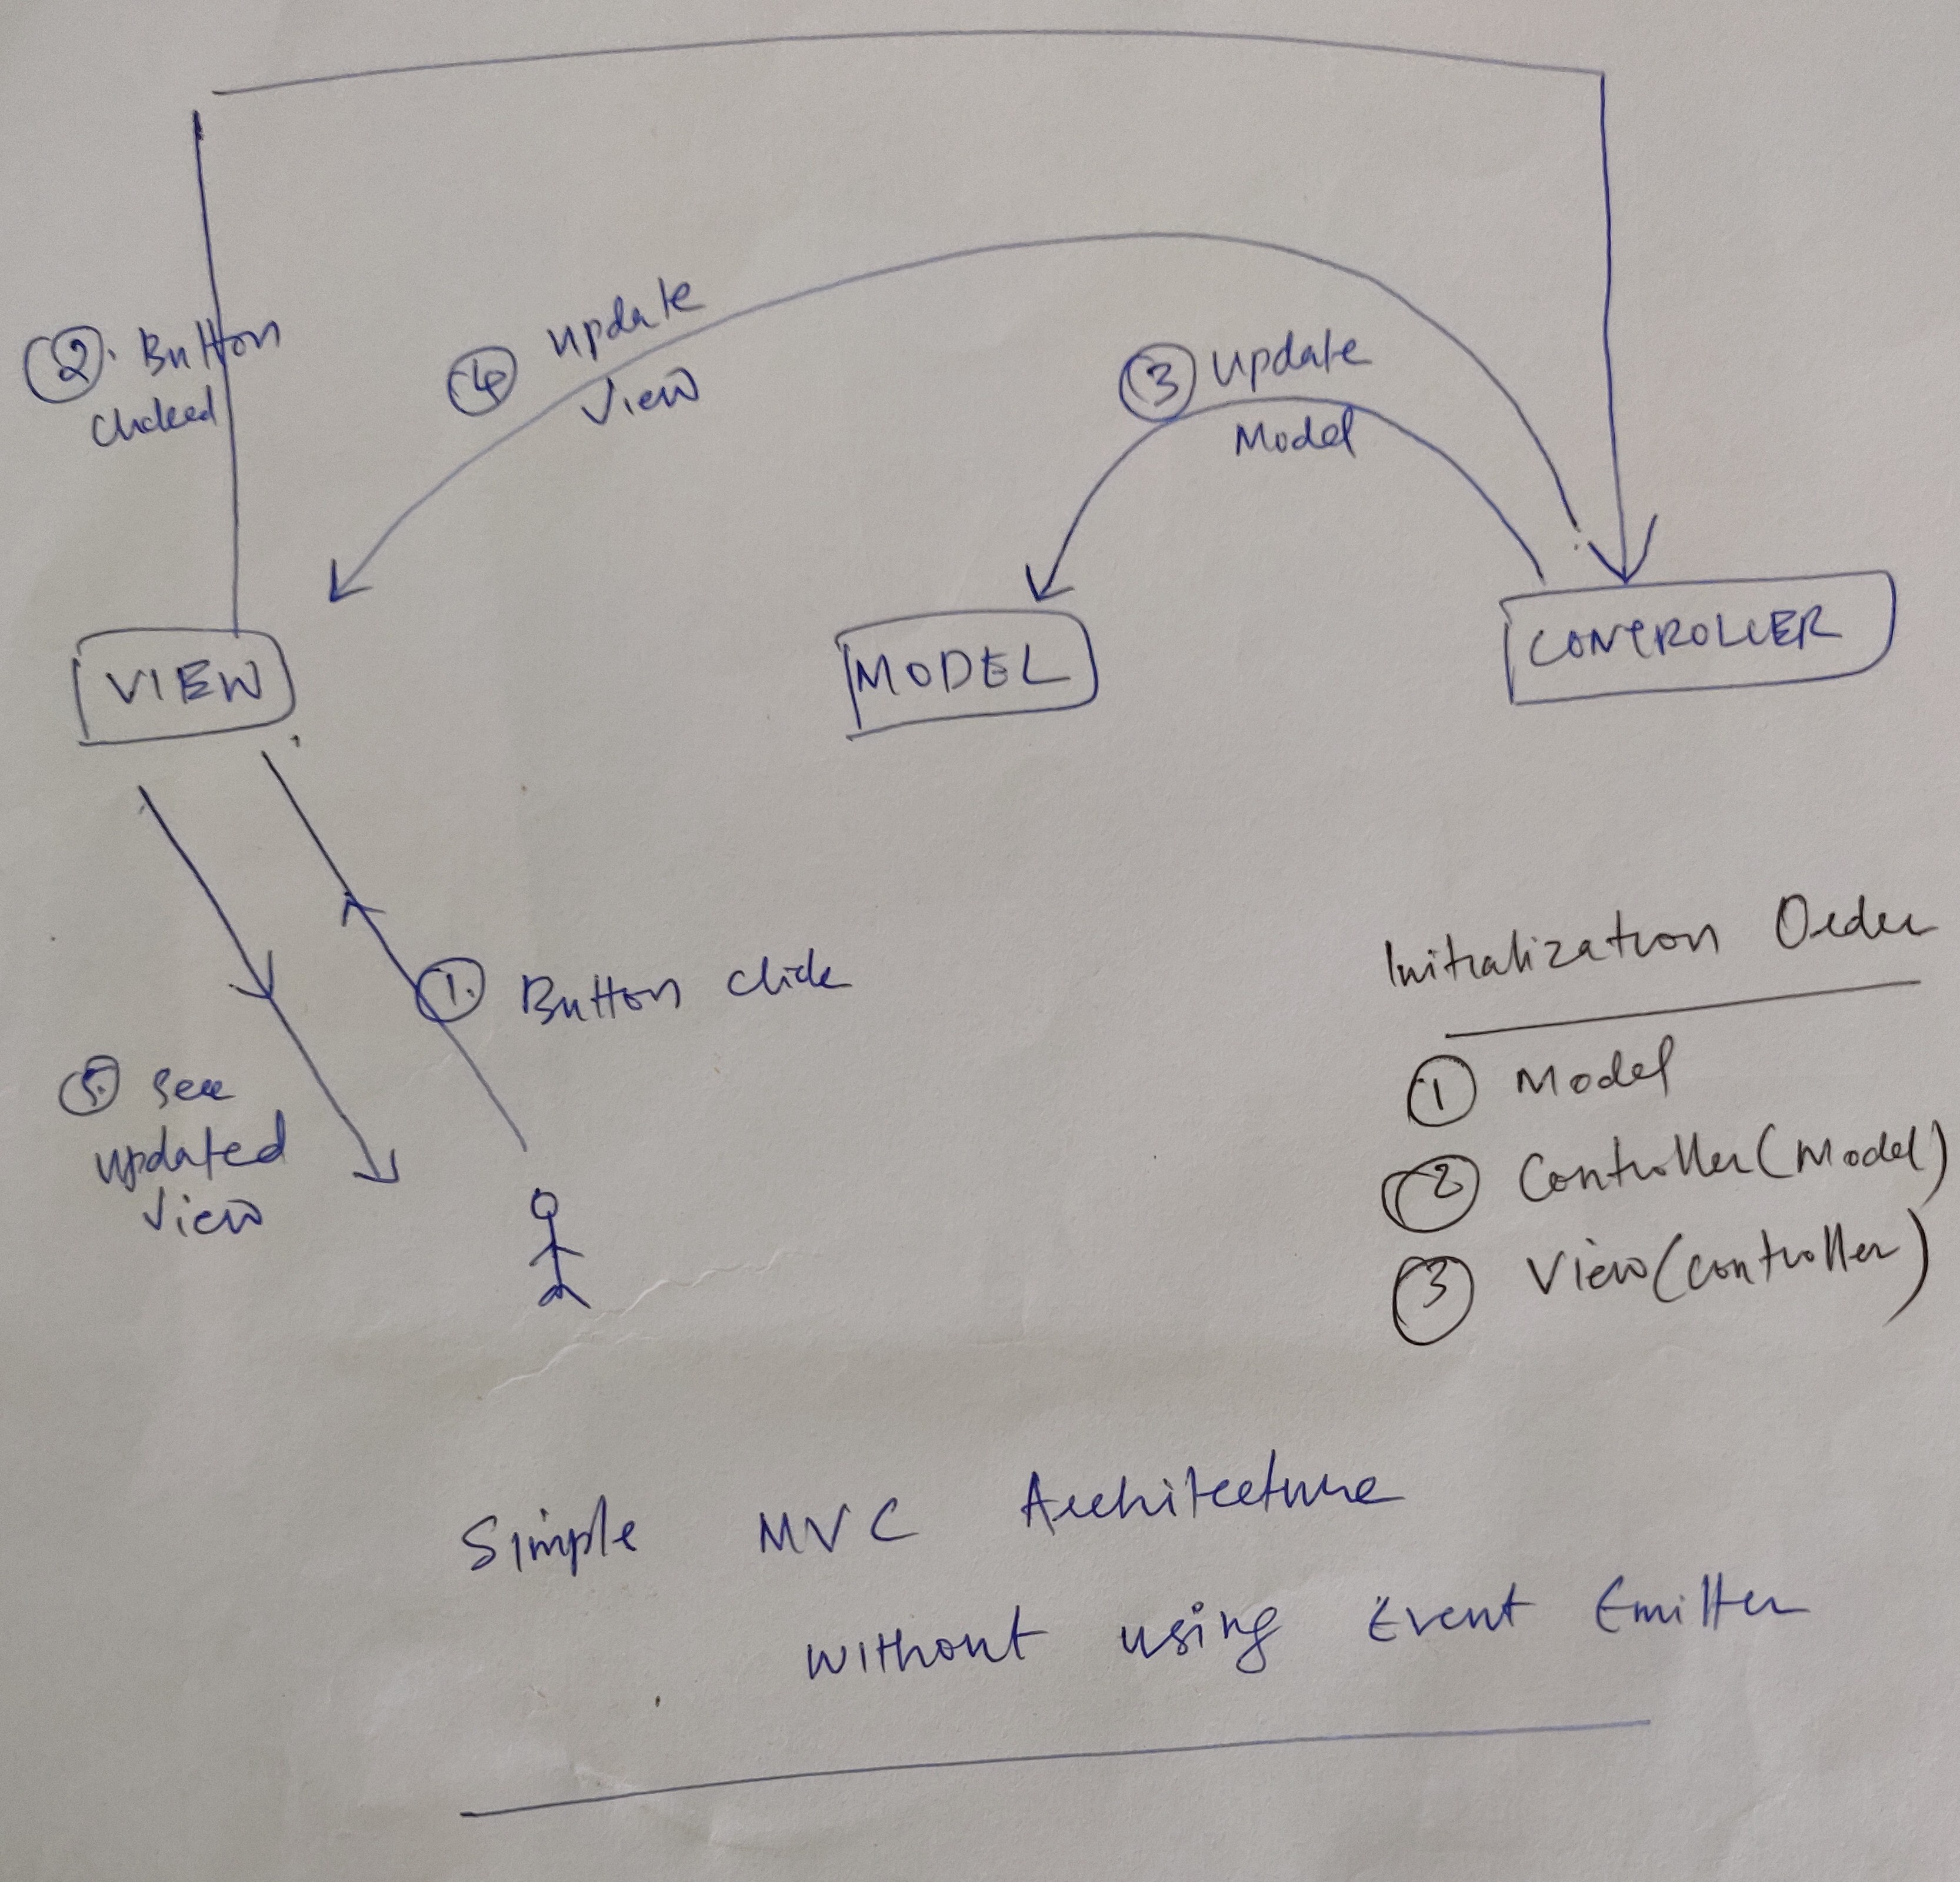 ② Button
clicked
④ update
view
③ update
Model
VIEW
MODEL
CONTROLLER
① Button click
⑤ see
updated
view
Initialization Order
① Model
② Controller(Model)
③ View(controller)
Simple MVC Architecture
without using Event Emitter